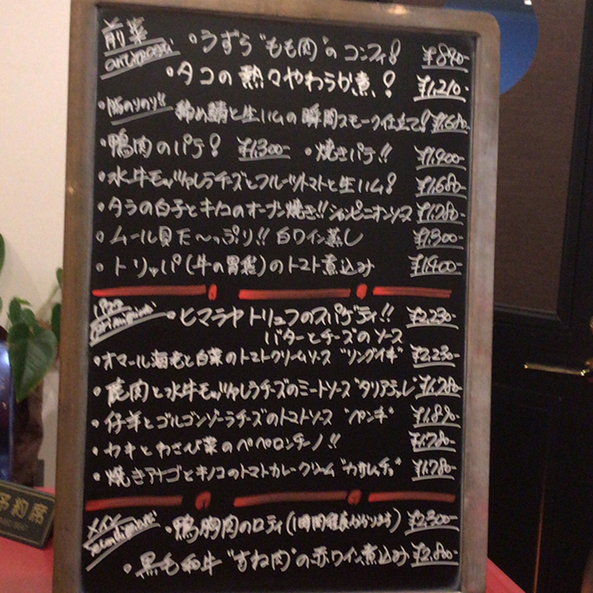 前菜 ・うずら"もも肉"のコンフィ! ¥890-
antipasti
・タコの熱々やわらか煮! ¥1,210-
・脂のりのり!! 締め鯖と生ハムの瞬間スモーク仕立て! ¥1,680-
・鴨肉のパテ! ¥1,300- ・焼きパテ!! ¥1,400-
・水牛モッツァレラチーズとフルーツトマトと生ハム! ¥1,680-
・タラの白子とキノコのオーブン焼き!! シャンピニオンソース ¥1,280-
・ムール貝た〜っぷり!! 白ワイン蒸し ¥1,300-
・トリッパ(牛の胃袋)のトマト煮込み ¥1,400-
・ヒマラヤトリュフのスパゲティ!! ¥2,230-
バターとチーズのソース
・オマール海老と白菜のトマトクリームソース "リングイネ" ¥2,230-
・鹿肉と水牛モッツァレラチーズのミートソース "タリアテッレ" ¥1,780-
・仔羊とゴルゴンゾーラチーズのトマトソース "ペンネ" ¥1,880-
・カキとわさび菜のペペロンチーノ!! ¥1,780-
・焼きアナゴとキノコのトマトカレークリーム "カサレッチェ" ¥1,780-
メイン ・鴨胸肉のロティ(1時間程度かかります) ¥2,300-
・黒毛和牛"すね肉"の赤ワイン煮込み ¥2,800-
予約席